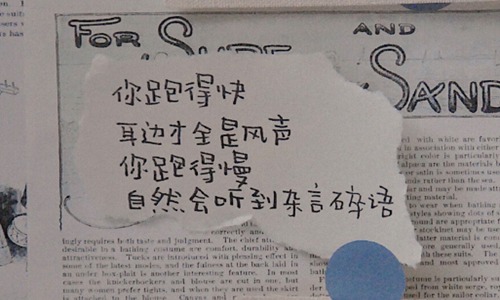 FOR
AND
SAND
你跑得快
耳边才全是风声
你跑得慢
自然会听到杂言碎语
with white are favor-
in association with either
right color is particularly
are the materials
or satin is sometimes
rather than the sea.
and may be made
material.
to wear when bathing
styles showing dots of
ground are appropriate
may be
material is more
generally used
with these suits. The
and most approved
ingly requires both taste and judgment. The chief
desirable in a bathing costume are comfort, durability
attractiveness. Tucks are introduced with pleasing effect in
some of the latest modes, and the fulness at the back laid in
an under box-plait is another interesting feature. In most
cases the knickerbockers and blouse are cut in one, but
many women prefer tights, and when they are used the skirt
is attached to the blouse.